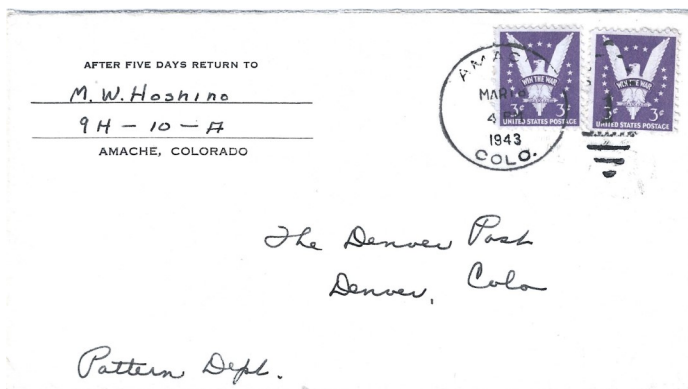 AFTER FIVE DAYS RETURN TO
M. W. Hoshino
9H - 10 - A
AMACHE, COLORADO
AMAC
MAR
4 PM
1943
COLO.
WIN THE WAR
3¢ 3¢
UNITED STATES POSTAGE
WIN THE WAR
3¢ 3¢
UNITED STATES POSTAGE
The Denver Post
Denver, Colo
Pattern Dept.